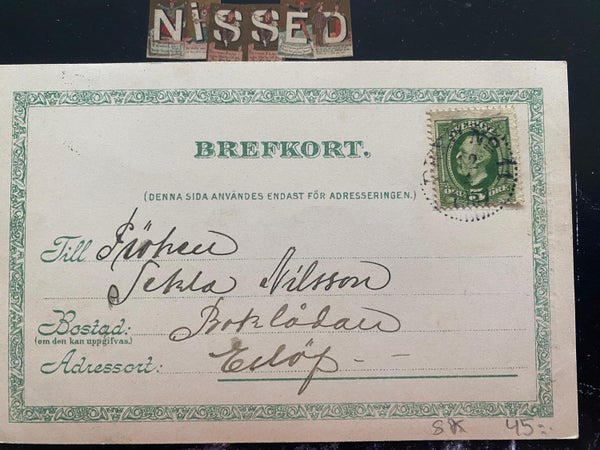 NiSSED
BREFKORT.
(DENNA SIDA ANVÄNDES ENDAST FÖR ADRESSERINGEN.)
SVERIGE
5
Till Fröken
Tekla Nilsson
Bostad: Boklådan
(om den kan uppgifvas.)
Adressort: Eslöf
45:-